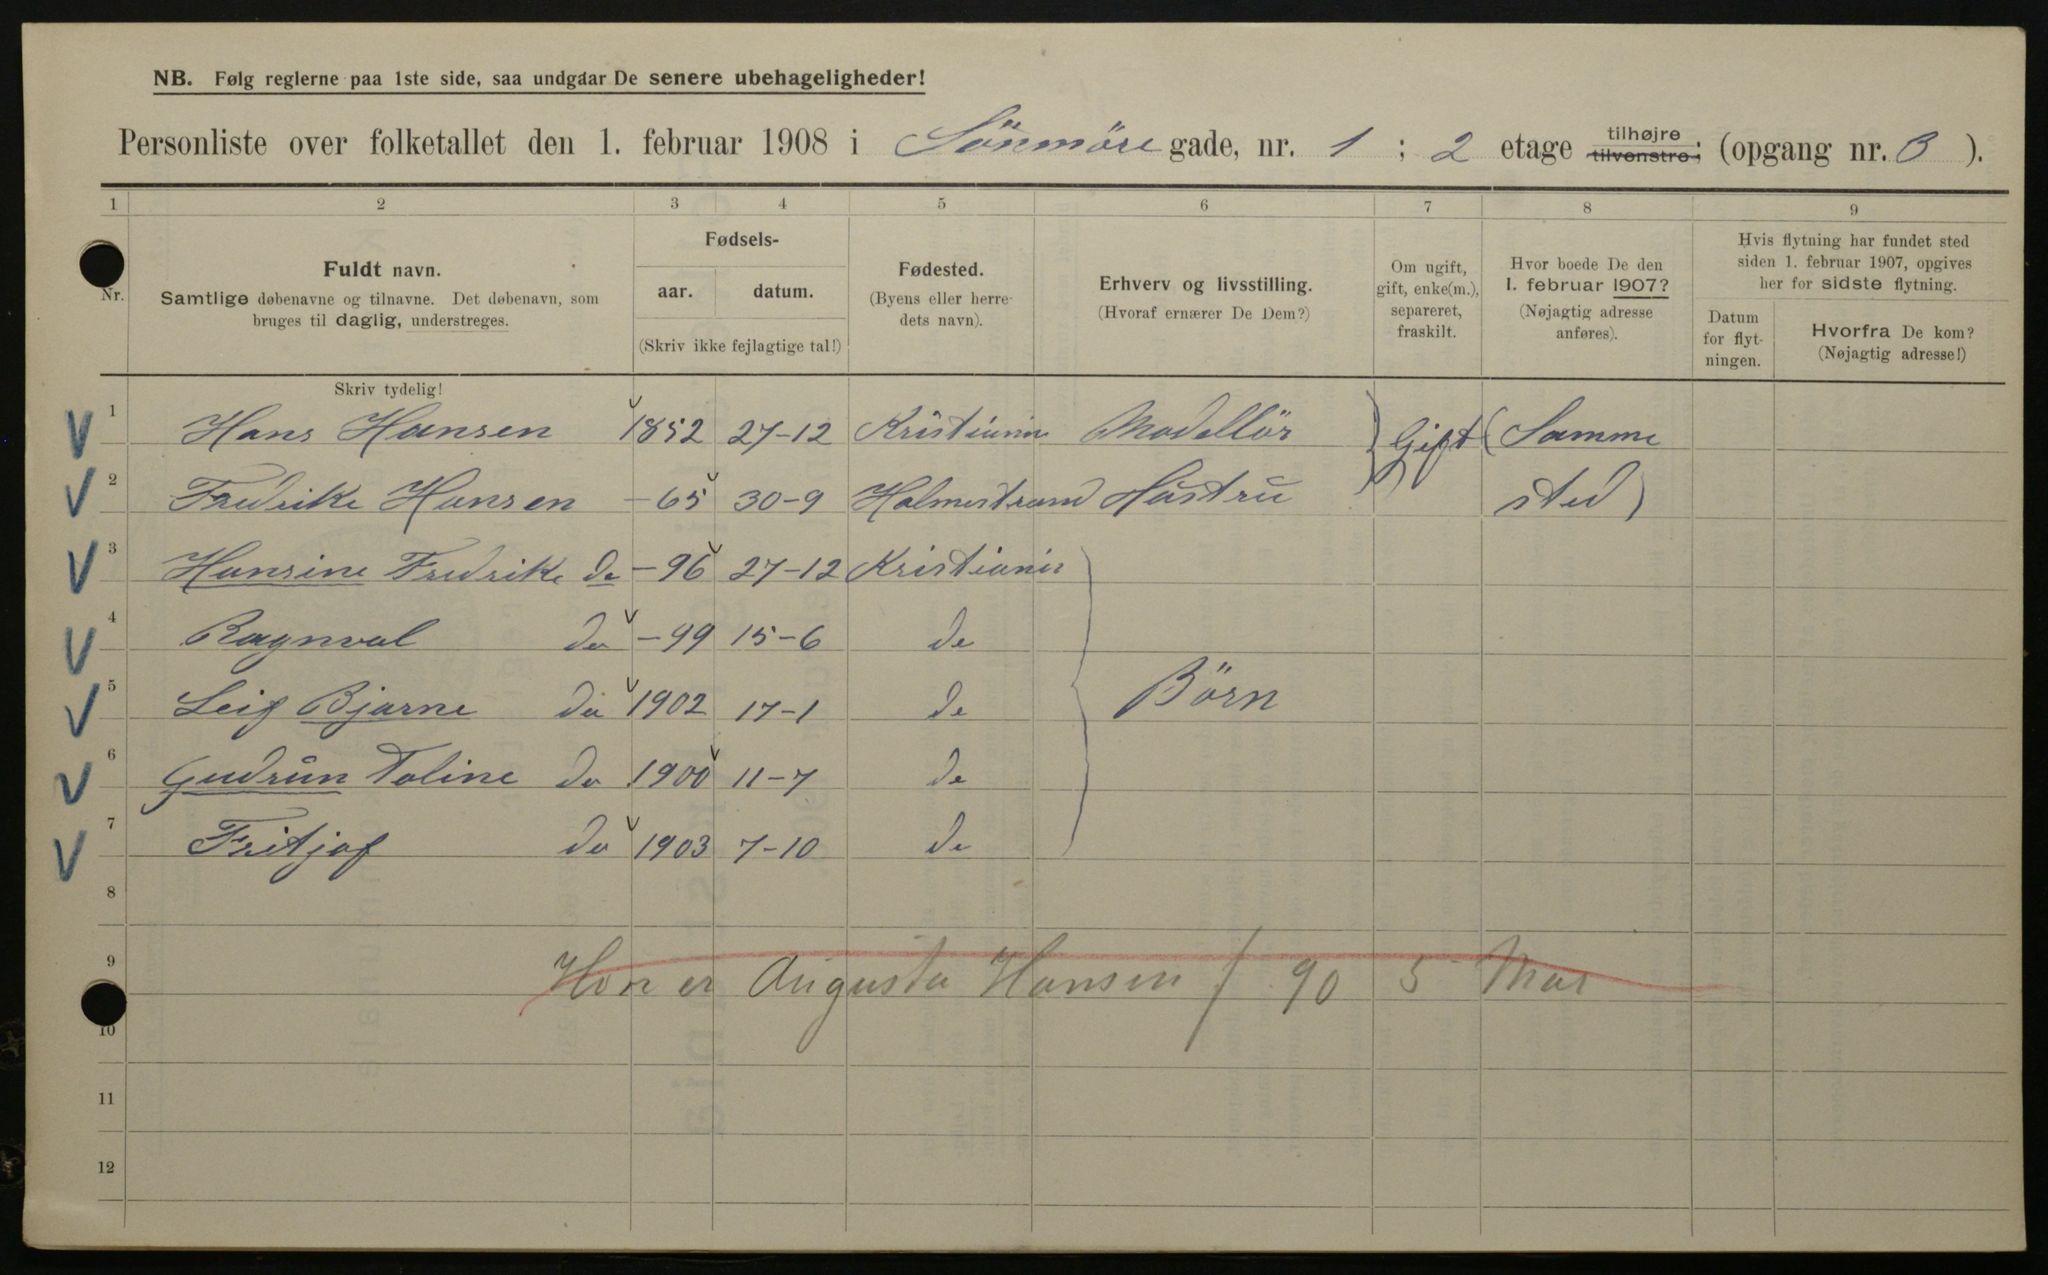 NB. Følg reglerne paa 1ste side, saa undgaar De senere ubehageligheder!
Personliste over folketallet den 1. februar 1908 i Sönmöre gade, nr. 1 ; 2 etage tilhøjre tilvenstre; (opgang nr. B ).
1 2 3 4 5 6 7 8 9
Nr.
Fuldt navn.
Samtlige døbenavne og tilnavne. Det døbenavn, som
bruges til daglig, understreges.
Fødsels-
aar. datum.
(Skriv ikke fejlagtige tal!)
Fødested.
(Byens eller herre-
dets navn).
Erhverv og livsstilling.
(Hvoraf ernærer De Dem?)
Om ugift,
gift, enke(m.),
separeret,
fraskilt.
Hvor boede De den
1. februar 1907?
(Nøjagtig adresse
anføres).
Hvis flytning har fundet sted
siden 1. februar 1907, opgives
her for sidste flytning.
Datum
for flyt-
ningen.
Hvorfra De kom?
(Nøjagtig adresse!)
Skriv tydelig!
1 Hans Hansen 1852 27-12 Kristiania Modellör } Gift ( Samme
2 Fredrike Hansen -65 30-9 Holmestrand Hustru sted )
3 Hansine Fredrike do -96 27-12 Kristiania
4 Ragnval do -99 15-6 do
5 Leif Bjarne do 1902 17-1 do } Börn
6 Gudrun Toline do 1900 11-7 do
7 Fritjof do 1903 7-10 do
8
9 Hvor er Augusta Hansen f 90 5 Mar
10
11
12